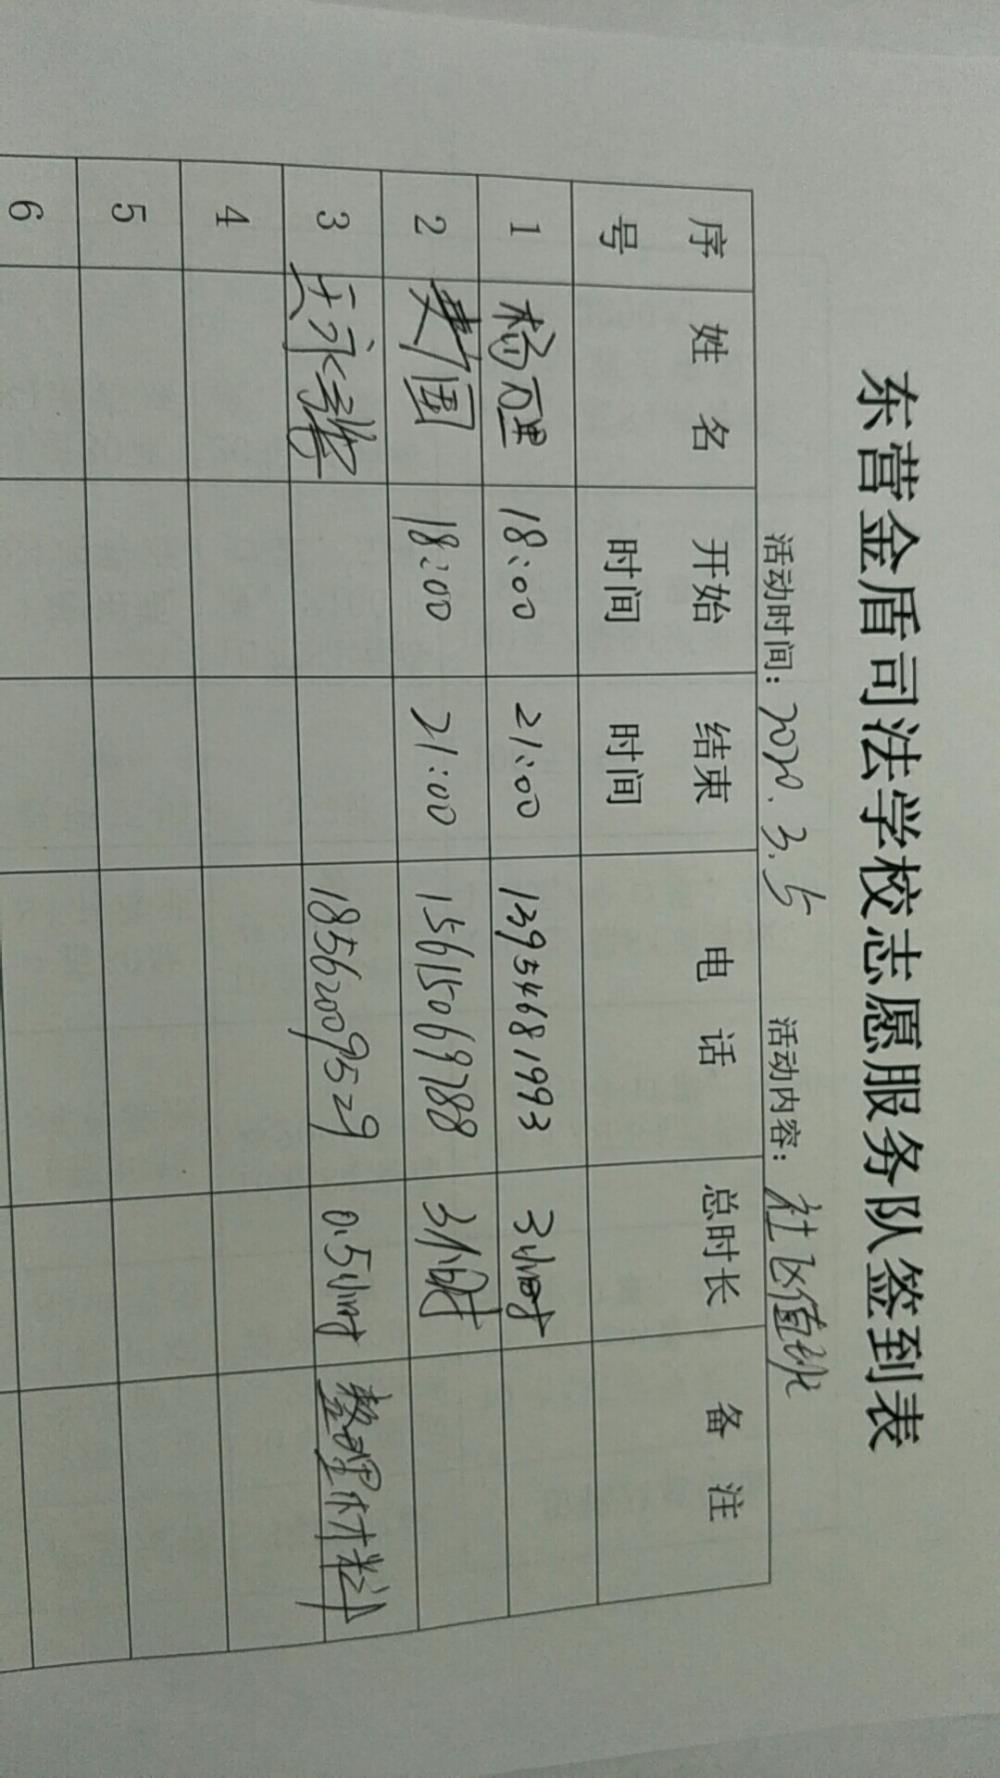 东营金盾司法学校志愿服务队签到表
活动时间：2020.3.5 活动内容：社区值班
序号 姓名 开始时间 结束时间 电话 总时长 备注
1 杨厘 18:00 21:00 13954681993 3小时
2 费围 18:00 21:00 15615069788 3小时
3 王永 18562009529 0.5小时 整理材料
4
5
6